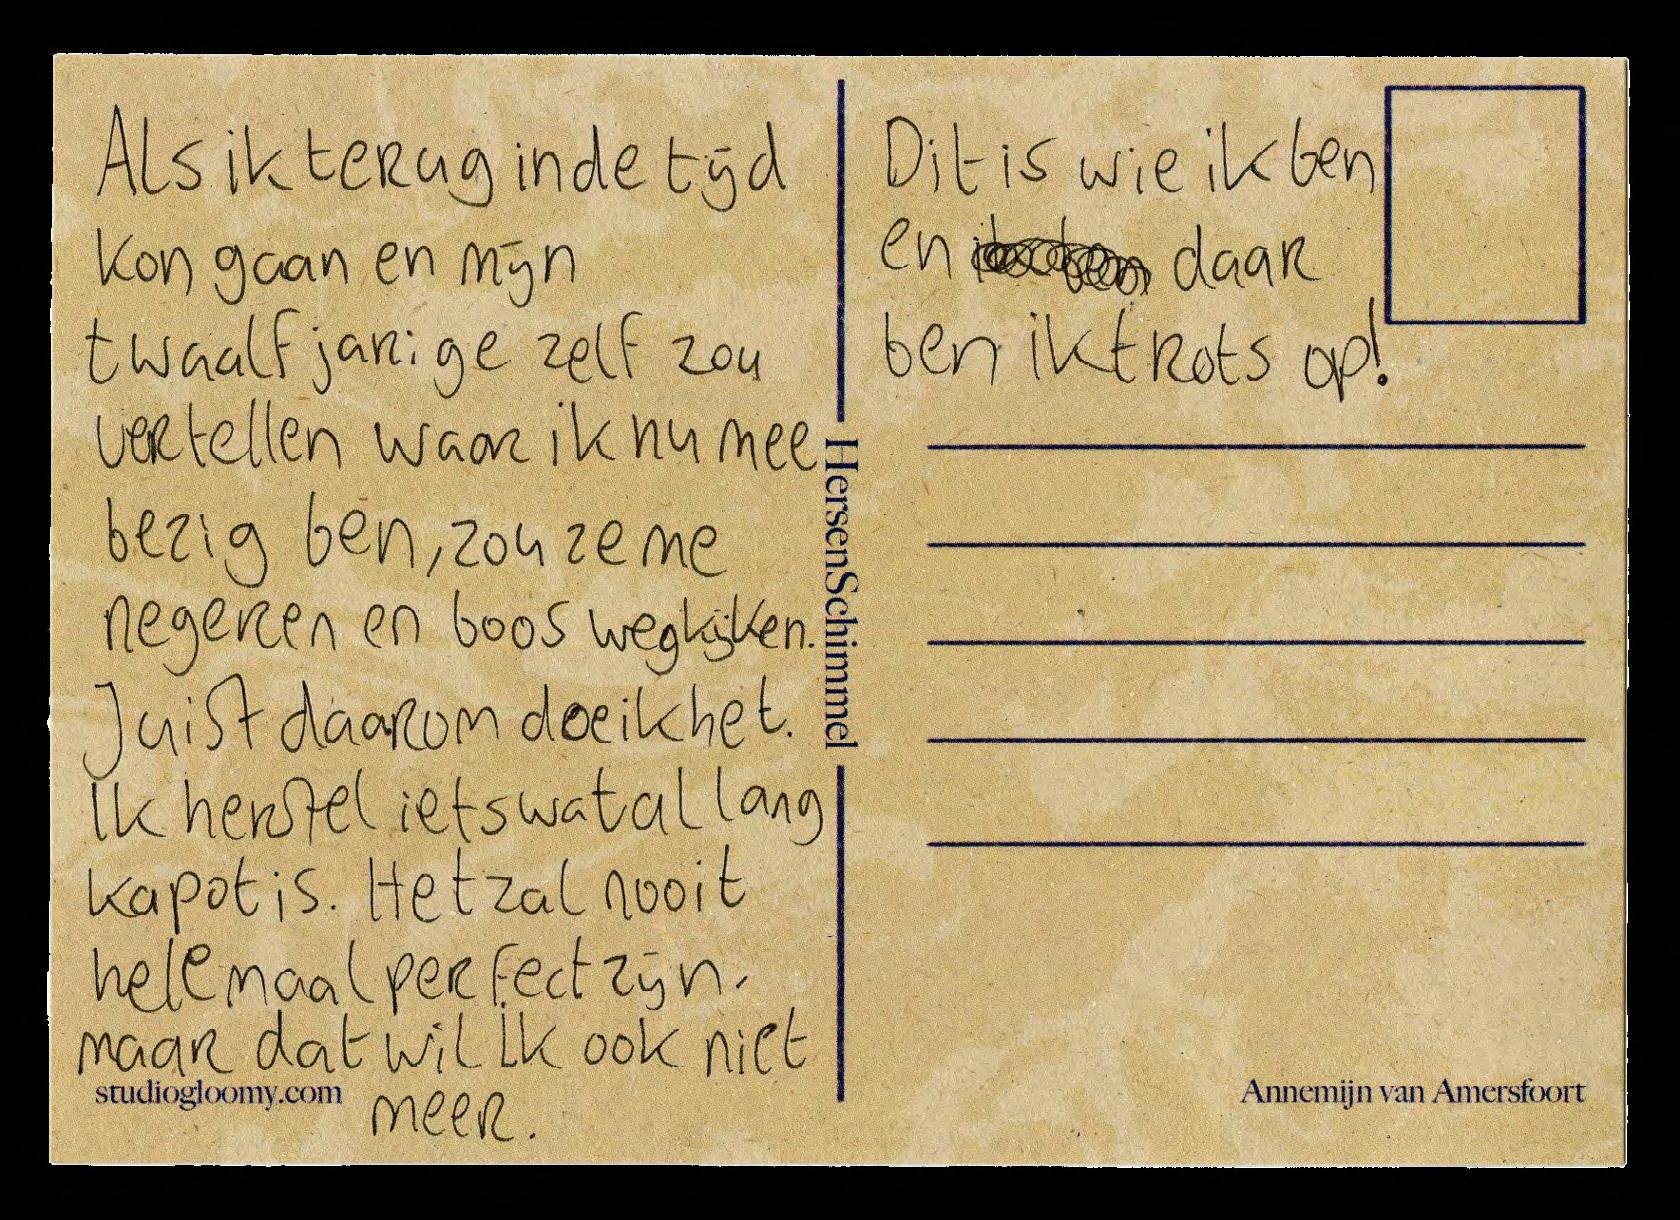 Als ik terug in de tijd
kon gaan en mijn
twaalf jarige zelf zou
vertellen waar ik nu mee
bezig ben, zou ze me
negeren en boos wegkijken.
Juist daarom doe ik het.
Ik herstel iets wat al lang
kapot is. Het zal nooit
helemaal perfect zijn.
maar dat wil ik ook niet
meer.
studiogloomy.com
HersenSchimmel
Dit is wie ik ben
en daar
ben ik trots op!
Annemijn van Amersfoort